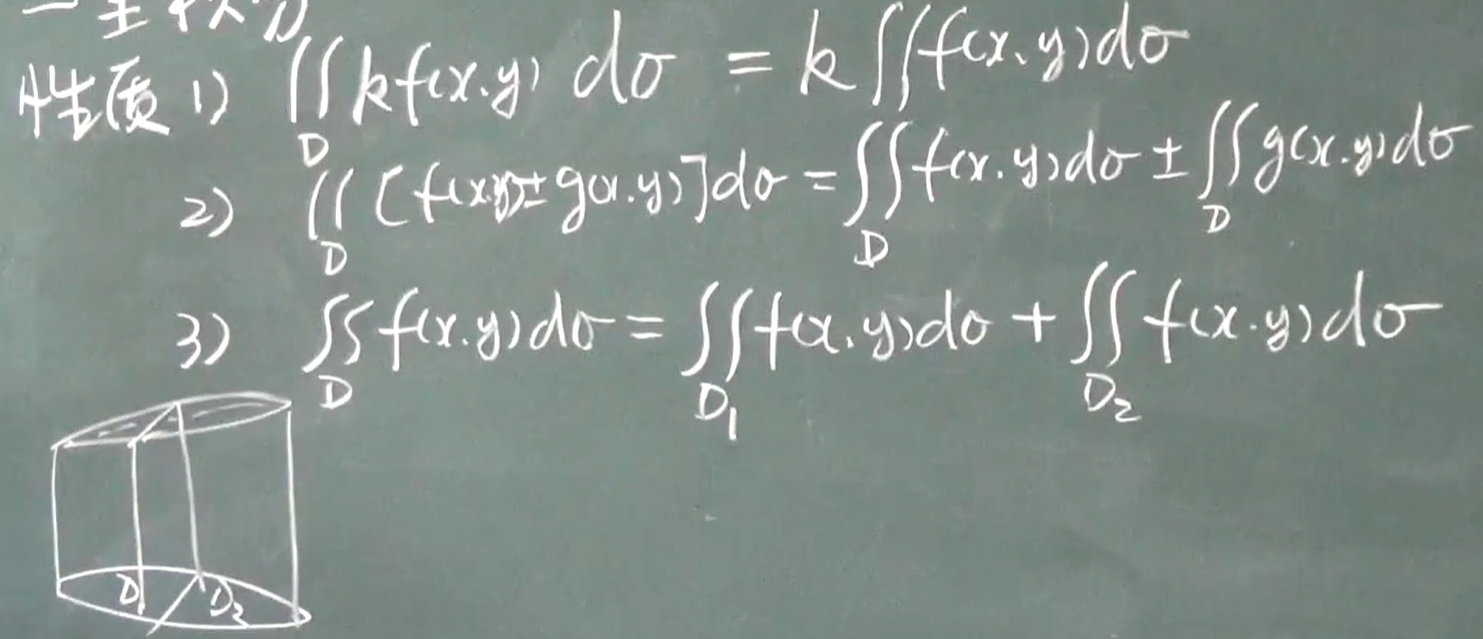 性质 1) ∬_D kf(x.y) dσ = k ∬ f(x.y)dσ
2) ∬_D [f(x.y)± g(x.y)]dσ = ∬_D f(x.y)dσ ± ∬_D g(x.y)dσ
3) ∬_D f(x.y)dσ = ∬_D₁ f(x.y)dσ + ∬_D₂ f(x.y)dσ
D₁ D₂